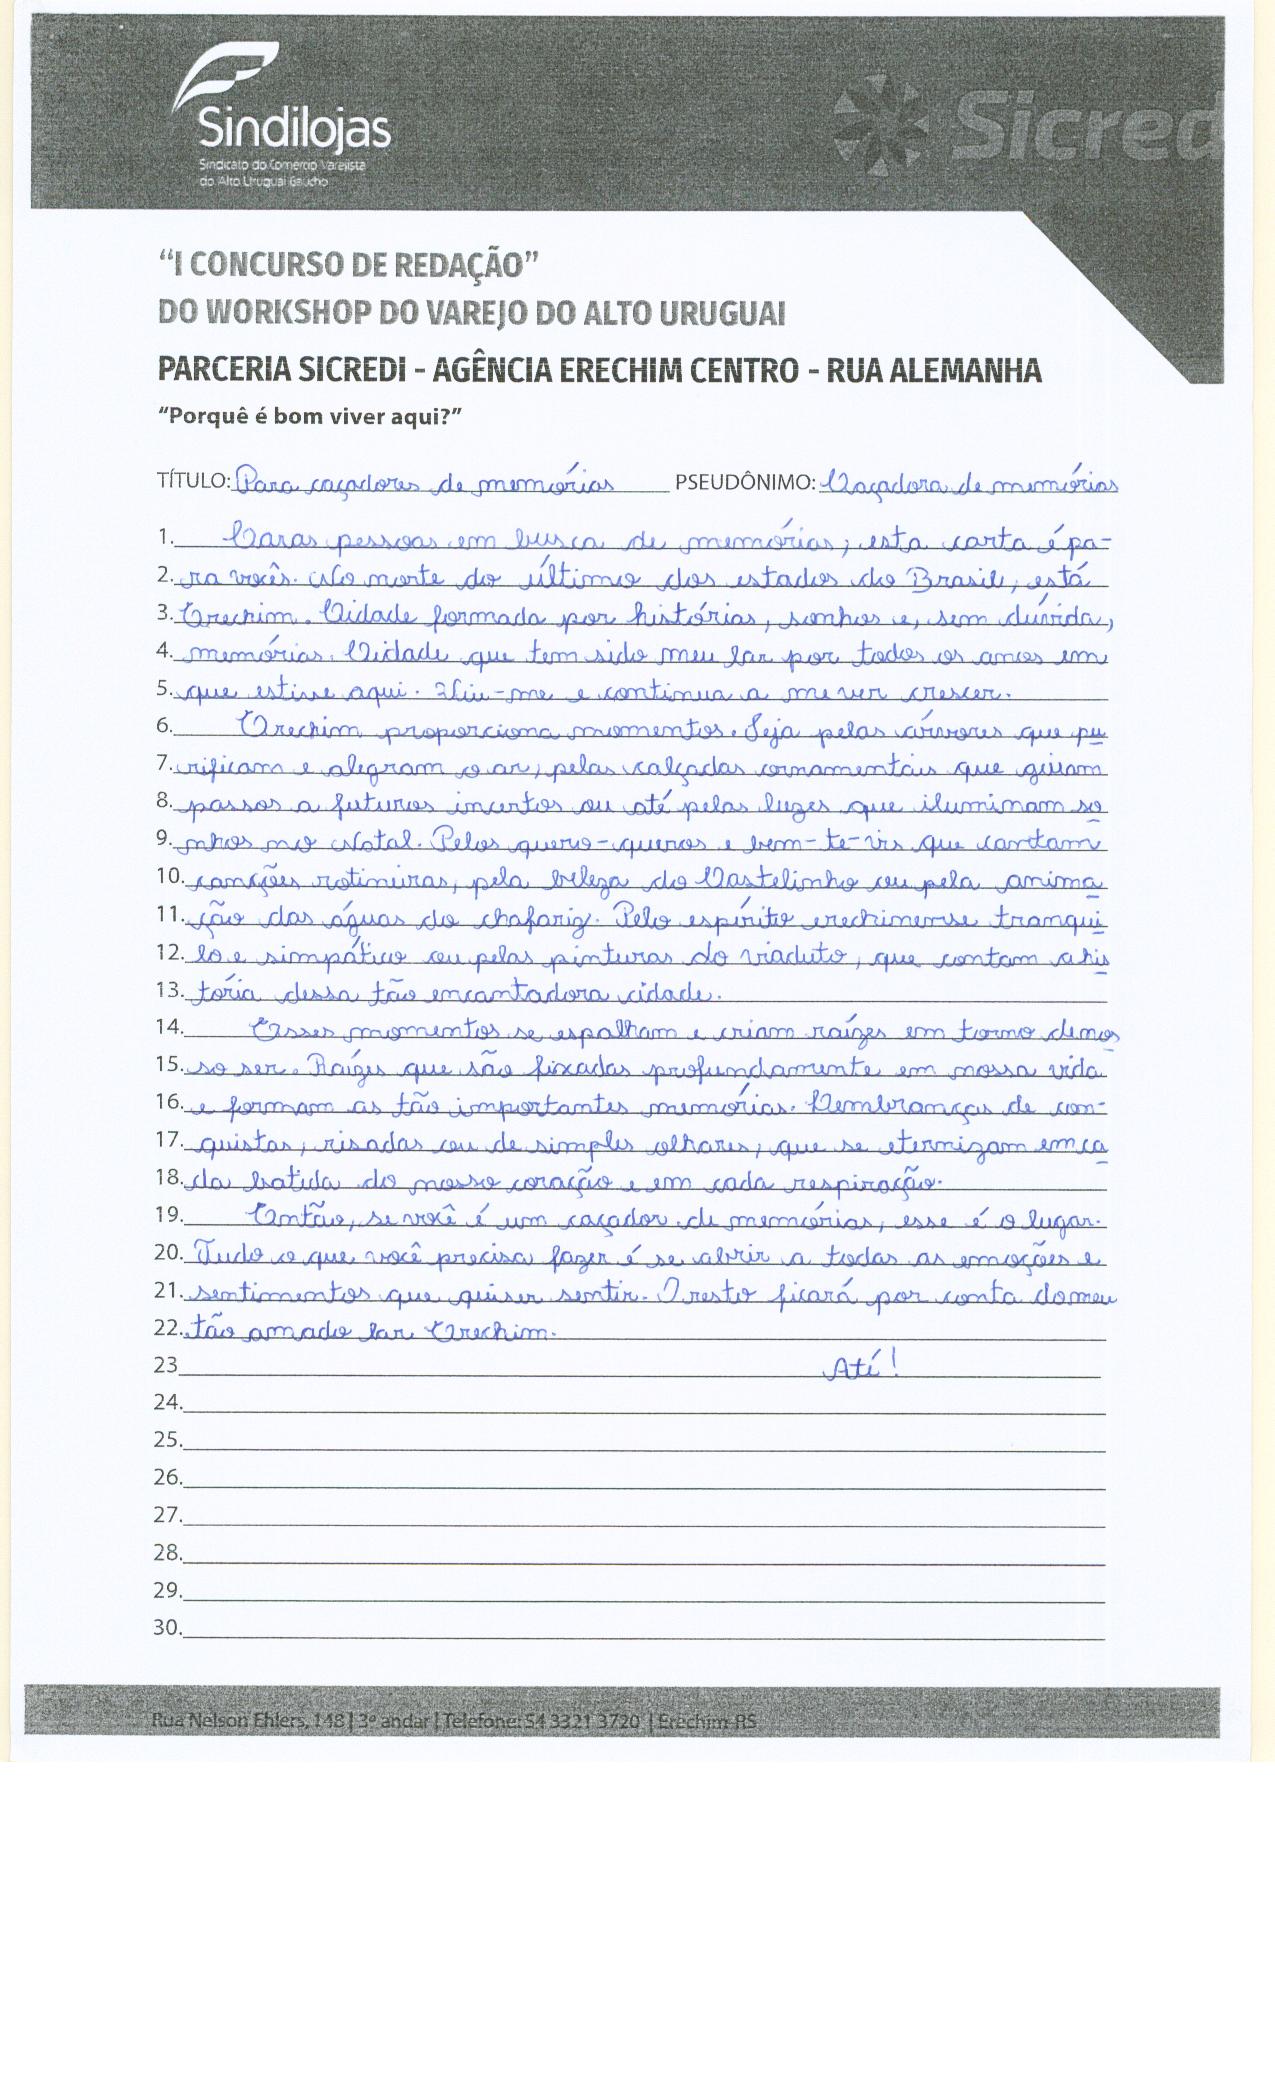 Sindilojas
Sindicato do Comércio Varejista
do Alto Uruguai Gaúcho
Sicred
“I CONCURSO DE REDAÇÃO”
DO WORKSHOP DO VAREJO DO ALTO URUGUAI
PARCERIA SICREDI - AGÊNCIA ERECHIM CENTRO - RUA ALEMANHA
“Porquê é bom viver aqui?”
TÍTULO: Para caçadores de memórias PSEUDÔNIMO: Caçadora de memórias
1. Caras pessoas em busca de memórias, esta carta é pa-
2. ra vocês. No norte do último dos estados do Brasil, está
3. Erechim. Cidade formada por histórias, sonhos e, sem dúvida,
4. memórias. Cidade que tem sido meu lar por todos os anos em
5. que estive aqui. Viu-me e continua a me ver crescer.
6. Erechim proporciona momentos. Seja pelas árvores que pu
7. rificam e alegram o ar, pelas calçadas ornamentais que guiam
8. passos a futuros incertos ou até pelas luzes que iluminam so
9. nhos no Natal. Pelos quero-queros e bem-te-vis que cantam
10. canções rotineiras, pela beleza do Castelinho ou pela anima
11. ção das águas do chafariz. Pelo espírito erechinense tranqui
12. lo e simpático ou pelas pinturas do viaduto, que contam a his
13. tória dessa tão encantadora cidade.
14. Esses momentos se espalham e criam raízes em torno de nos
15. so ser. Raízes que são fixadas profundamente em nossa vida
16. e formam as tão importantes memórias. Lembranças de con-
17. quistas, risadas ou de simples olhares, que se eternizam em ca
18. da batida do nosso coração e em cada respiração.
19. Então, se você é um caçador de memórias, esse é o lugar.
20. Tudo o que você precisa fazer é se abrir a todas as emoções e
21. sentimentos que quiser sentir. O resto ficará por conta do meu
22. tão amado lar Erechim.
23 Até!
24.
25.
26.
27.
28.
29.
30.
Rua Nelson Ehlers, 148 | 3º andar | Telefone: 54 3321 3720 | Erechim-RS